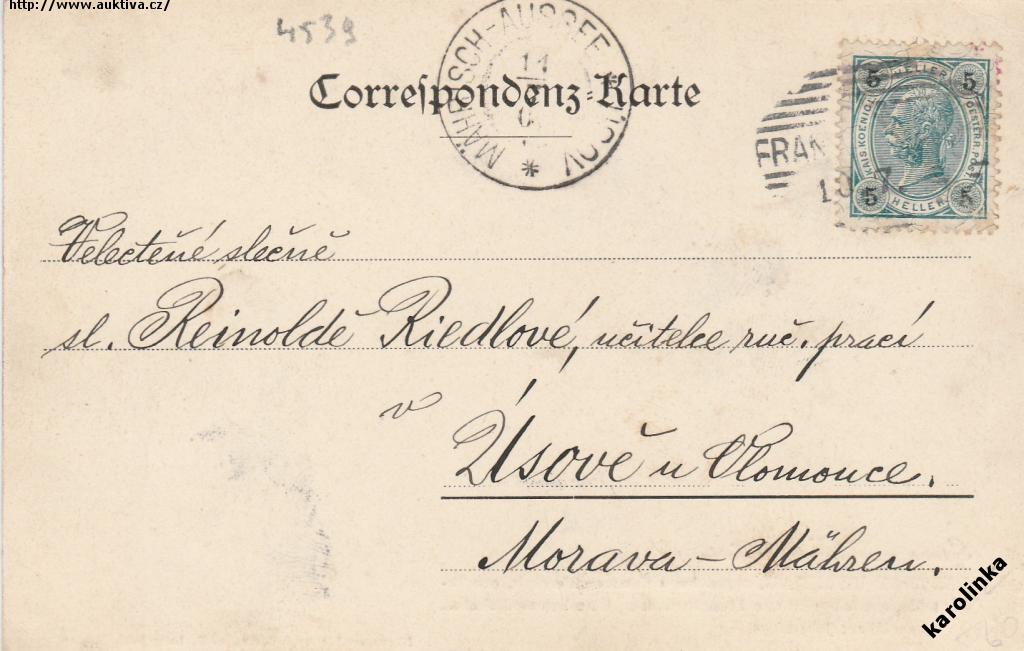 http://www.auktiva.cz/
4539
MÄHRISCH-AUSSEE
11
Correspondenz-Karte
5 HELLER 5
KAIS. KOENIGL. OESTERR. POST
5 HELLER 5
FRAN
Velectěné slečně
sl. Reinoldě Riedlové, učitelce ruč. prací
v
Úsově u Olomouce.
Morava-Mähren.
karolinka